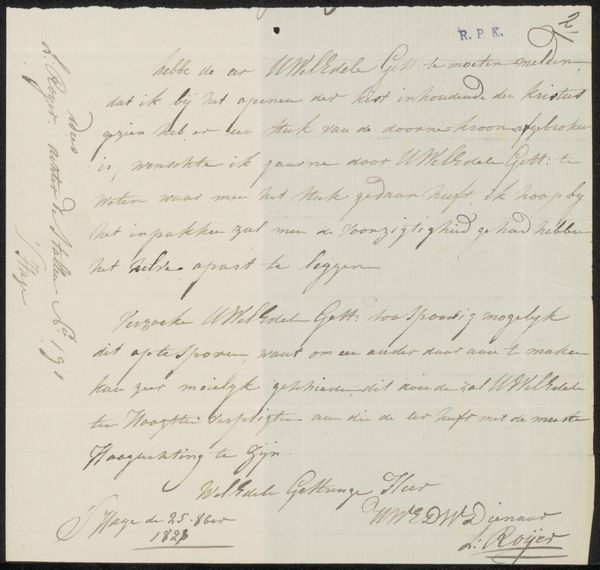 2
R. P. K.
hebbe de eer UWelEdele Gest: te moeten melden,
dat ik bij het openen der kist inhoudende den kristus
gezien heb er een stuk van de doorne kroon afgebroken
is, wenschte ik gaarne door UWelEdele Gest: te
weten waar men het stuk gedaan heeft, ik hoop by
het inpakken zal men de voorzigtigheid gehad hebben
het zelve apart te leggen
Verzoeke UWelEdele Gest: zoo spoedig mogelyk
dit op te sporen, want om een ander daar aan t maken
kan zeer moielyk geschieden, dit doende zal UWelEdele
ten Hoogsten verpligten aan die de eer heeft met de meeste
Hoogachting te zyn
WelEdele Gestrenge Heer
S Hage de 25. 8ber
UWEDW Dienaar
L: Royer
adres
L: Royer. achter de Stallen No 191
S Hage